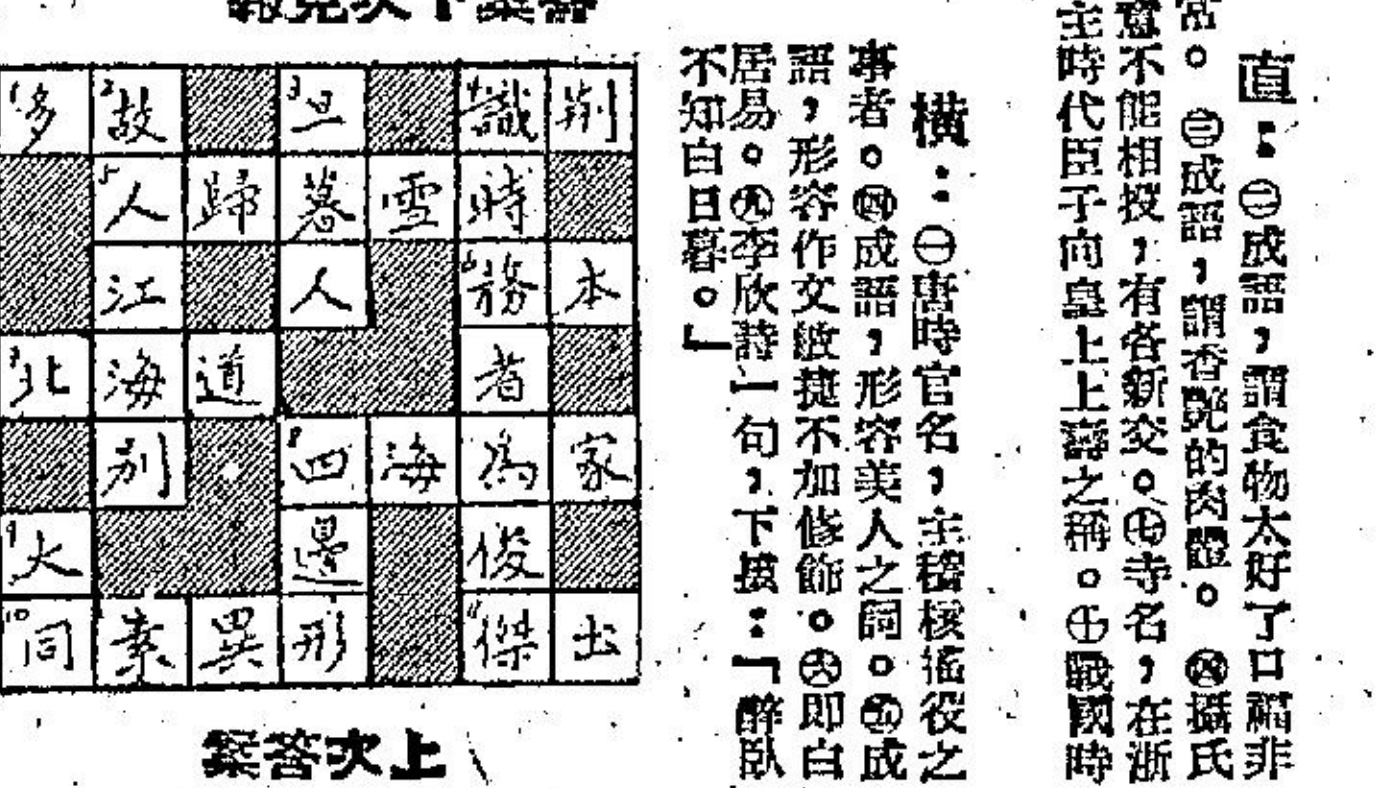 直：㊀成語，謂食物太好了口福非
常。㊂成語，謂香艷的肉體。㊃攝氏
意不能相投，有各新交。㊆寺名，在浙
主時代臣子向皇上上壽之稱。㊉戰國時
橫：㊀唐時官名，主稽核徭役之
事者。㊃成語，形容美人之詞。㊄成
語，形容作文敏捷不加修飾。㊅即白
居易。㊈李欣詩一句，下接：「醉臥
不知白日暮。」
答案下次見報
1多 2故 3旦 4識 荆
5人 歸 暮 雪 時
江 人 6務 本
7北 海 道 者
別 8四 海 為 家
9大 邊 俊
10同 素 異 形 11傑 出
上次答案